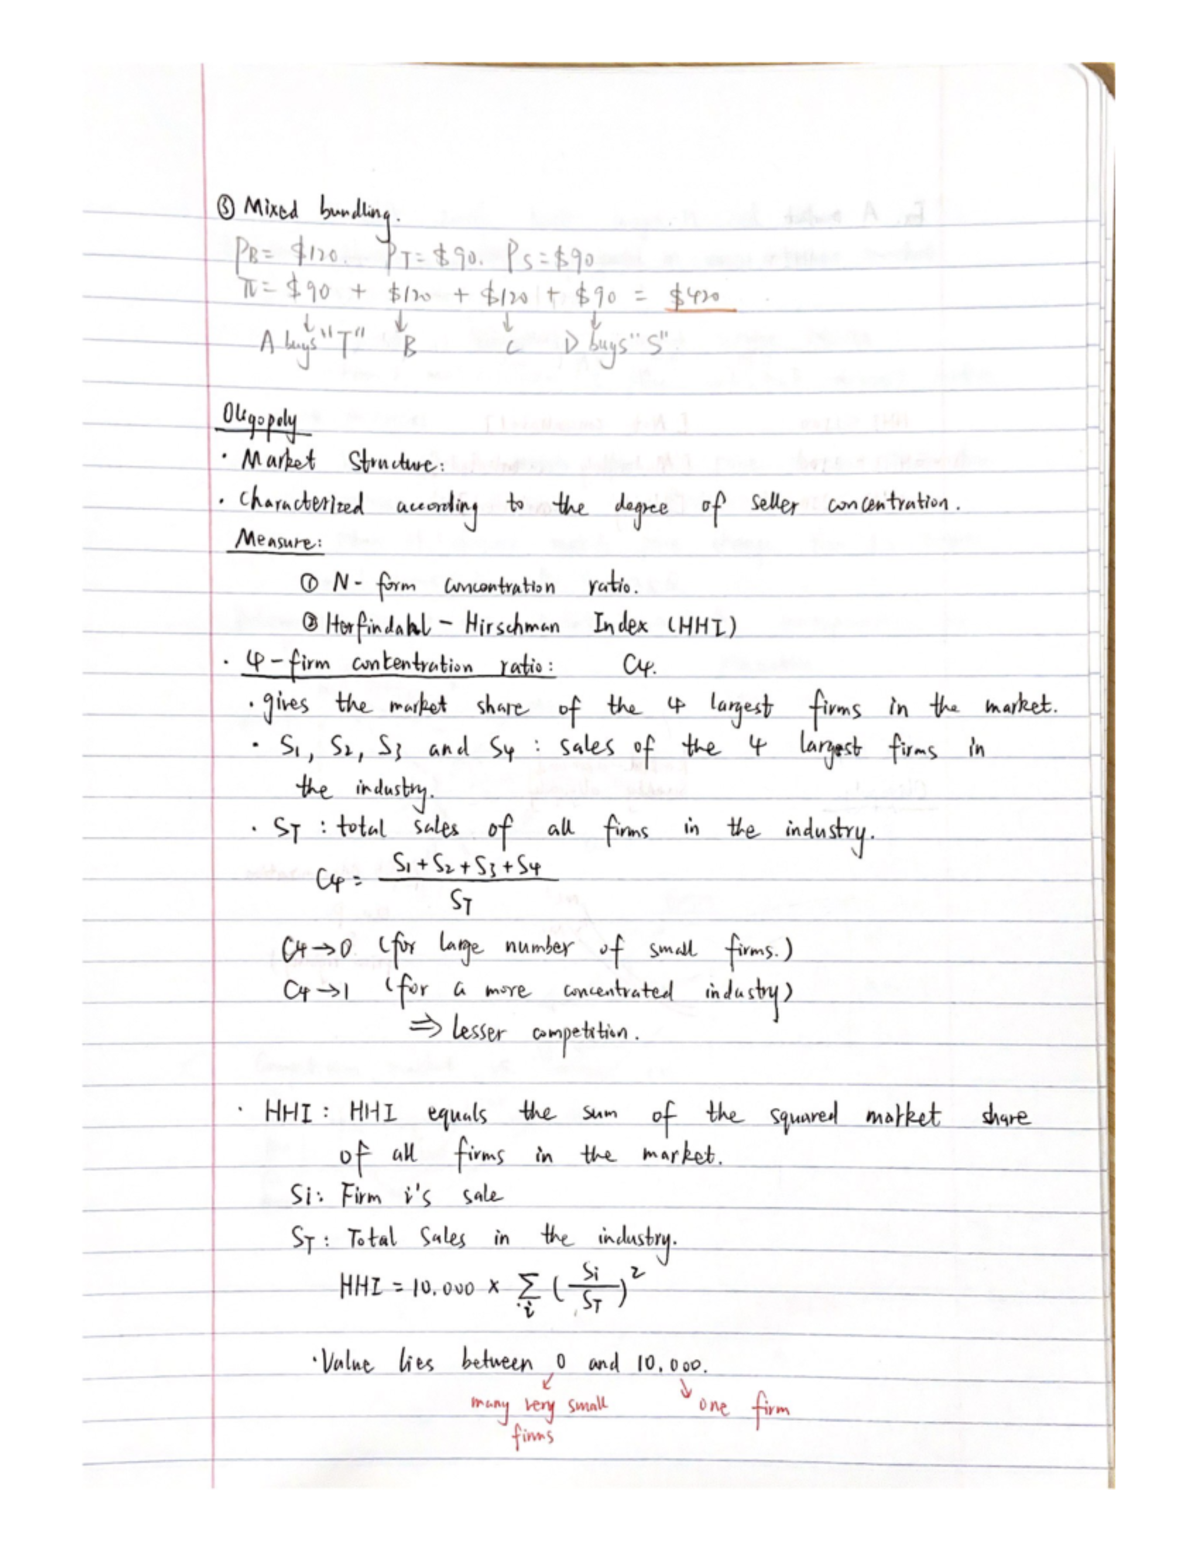 ③ Mixed bundling.
PB = $120. PT = $90. PS = $90
π = $90 + $120 + $120 + $90 = $420
A buys "T" B C D buys "S"
Oligopoly
· Market Structure:
· Characterized according to the degree of seller concentration.
Measure:
① N - form concentration ratio.
② Herfindahl - Hirschman Index (HHI)
· 4-firm contentration ratio: C4.
· gives the market share of the 4 largest firms in the market.
· S1, S2, S3 and S4 : sales of the 4 largest firms in
the industry.
· ST : total sales of all firms in the industry.
C4 = (S1 + S2 + S3 + S4) / ST
C4 → 0 (for large number of small firms.)
C4 → 1 (for a more concentrated industry)
⇒ lesser competition.
· HHI : HHI equals the sum of the squared market share
of all firms in the market.
Si: Firm i's sale
ST : Total Sales in the industry.
HHI = 10.000 × Σi (Si / ST)²
· Value lies between 0 and 10.000.
many very small → one firm
firms